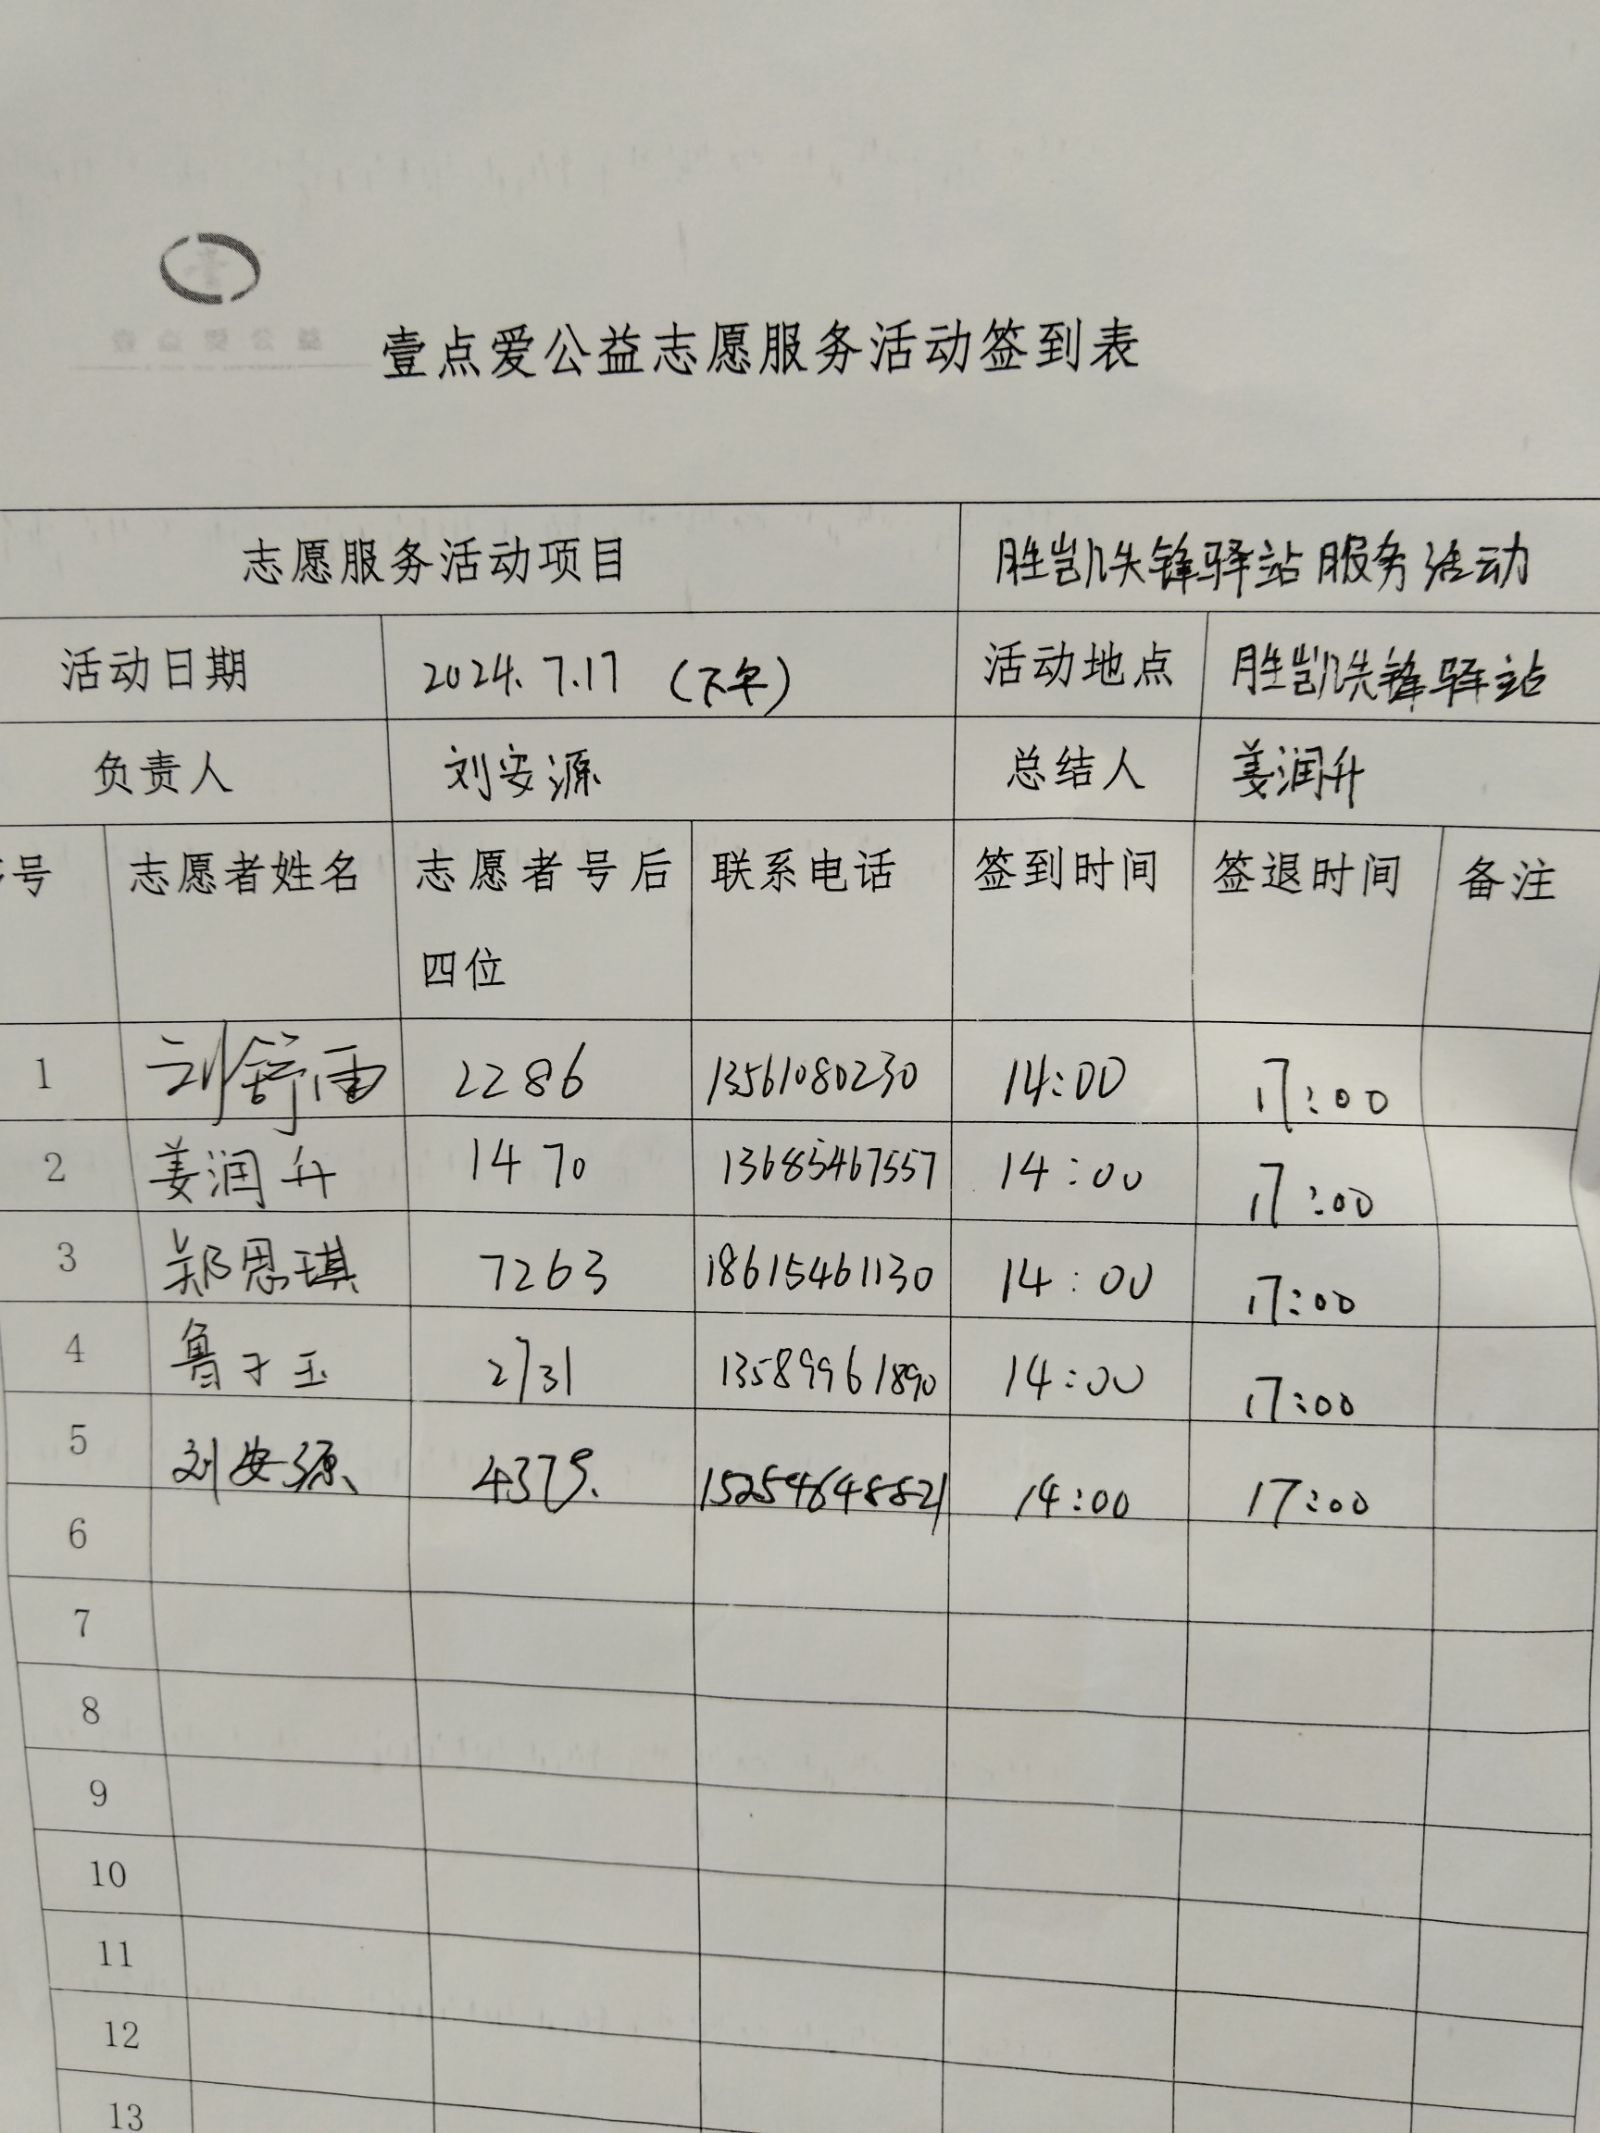 壹点爱公益志愿服务活动签到表
志愿服务活动项目 胜凯先锋驿站服务活动
活动日期 2024.7.17 (下午) 活动地点 胜凯先锋驿站
负责人 刘安源 总结人 姜润升
号 志愿者姓名 志愿者号后 联系电话 签到时间 签退时间 备注
四位
1 刘舒雨 2286 13561080230 14:00 17:00
2 姜润升 1470 13685467557 14:00 17:00
3 郑思琪 7263 18615461130 14:00 17:00
4 鲁子玉 2731 13589961890 14:00 17:00
5 刘安源 4379. 15254648821 14:00 17:00
6
7
8
9
10
11
12
13